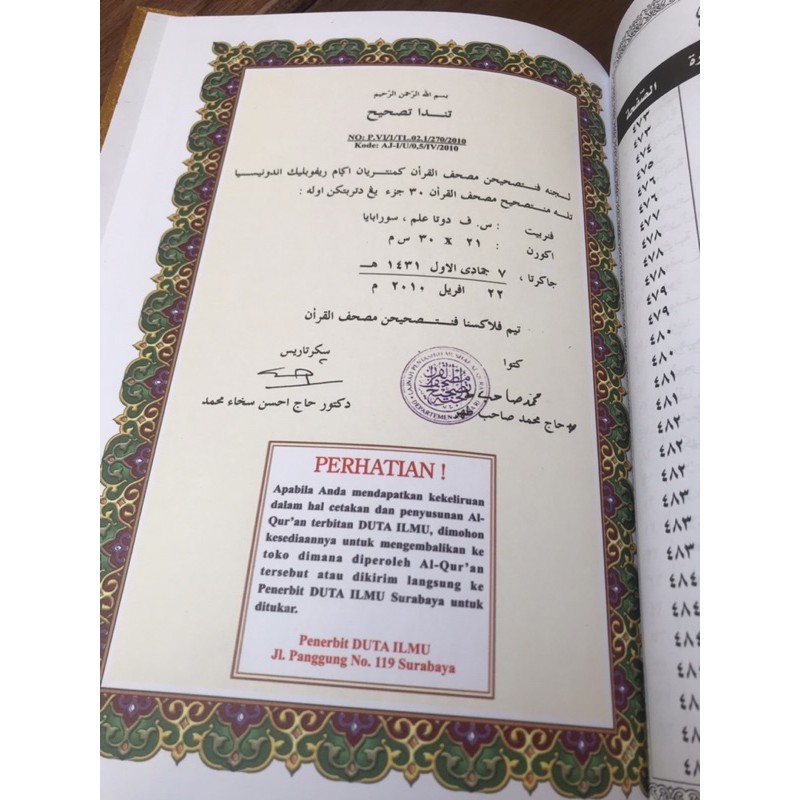 بسم الله الرحمن الرحيم
تندا تصحيح
NO: P.VI/I/TL.02.1/270/2010
Kode: AJ-I/U/0,5/IV/2010
لجنه فنتصحيحن مصحف القرأن كمنتريان اڬام ريفوبليك اندونيسيا
تله منتصحيح مصحف القرأن ٣٠ جزء يڠ دتربتكن اوله :
فنربيت : س. ف دوتا علم ، سورابايا
اكورن : ٢١ x ٣٠ س م
جاكرتا ، ٧ جمادى الاول ١٤٣١ هـ
٢٢ افريل ٢٠١٠ م
تيم فلاكسنا فنتصحيحن مصحف القرأن
كتوا
سكرتاريس
محمد صاحب
حاج محمد صاحب
دكتور حاج احسن سخاء محمد
PERHATIAN !
Apabila Anda mendapatkan kekeliruan
dalam hal cetakan dan penyusunan Al-
Qur'an terbitan DUTA ILMU, dimohon
kesediaannya untuk mengembalikan ke
toko dimana diperoleh Al-Qur'an
tersebut atau dikirim langsung ke
Penerbit DUTA ILMU Surabaya untuk
ditukar.
Penerbit DUTA ILMU
Jl. Panggung No. 119 Surabaya
الصفحة
٤٧٣
٤٧٣
٤٧٤
٤٧٥
٤٧٦
٤٧٦
٤٧٧
٤٧٨
٤٧٨
٤٧٨
٤٧٩
٤٧٩
٤٨٠
٤٨٠
٤٨١
٤٨١
٤٨٢
٤٨٢
٤٨٣
٤٨٣
٤٨٣
٤٨٤
٤٨٤
٤٨٤